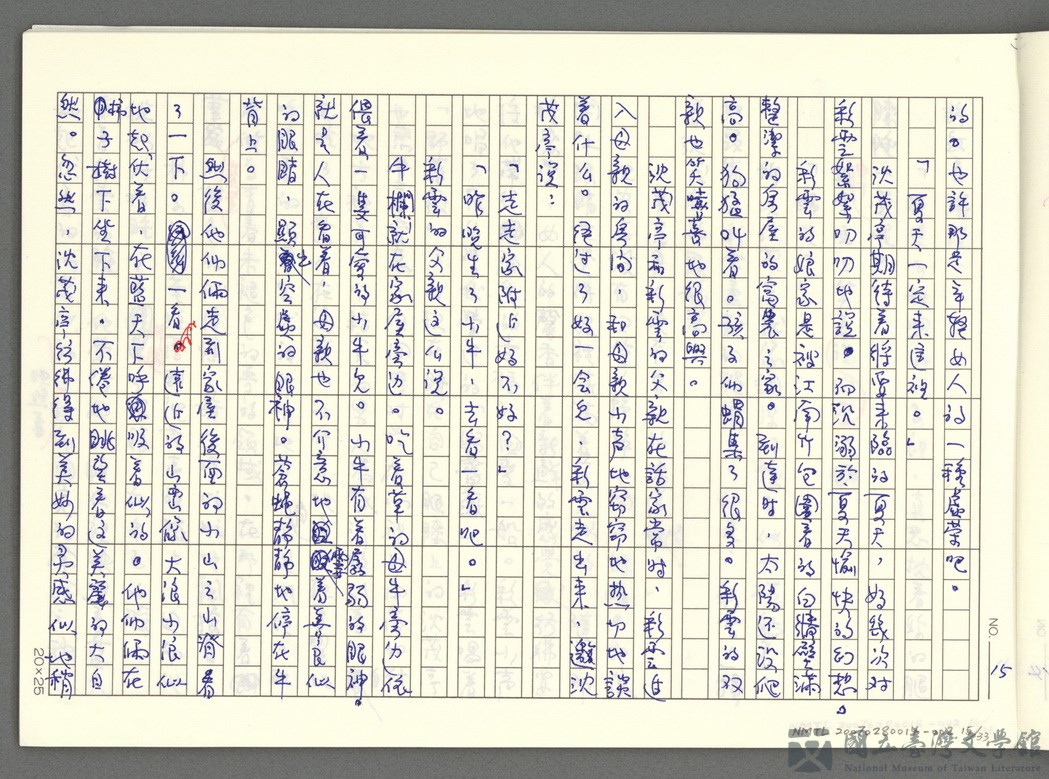 的。也許那是年輕女人的一種虛榮吧。
「夏天一定来這裡。」
沈茂亭期待着將要来臨的夏天，好幾次对
彩雲絮絮叨叨地説。而沉溺於夏天愉快的幻想。
彩雲的娘家是被江南竹包圍着的白牆壁滿
整潔的房屋的富農之家。到達时，太陽还没爬
高。狗猛叫着。孩子们蝟集了很多。彩雲的双
親也笑嘻嘻地很高興。
沈茂亭和彩雲的父親在話家常時，彩雲进
入母親的房间，和母親小声地窃窃地热切地談
着什么。经过了好一会兒，彩雲走出来，邀沈
茂亭説：
「走走家附近好不好？」
「昨晚生了小牛，去看一看吧。」
彩雲的父親这么说。
牛欄就在家屋旁边。吃着草的母牛旁边依
偎着一隻可愛的小牛兒。小牛有着孱弱的眼神。
就是人在看着，母親也不介意地 着善良似
的眼睛，顯出空虚的眼神。蒼蝇静静地停在牛
背上。
然後他们倆走到家屋後面的小山之山脊看
了一下。 一看。遠近的山巒像大浪小浪似
地起伏着，在藍天下呼吸着似的。他们倆在
柿子樹下坐下来。不倦地眺望着这美麗的大自
然。忽然，沈茂亭彷彿得到美妙的灵感似地稍
NO. 15
20×25
NMTL 20070280014-008 15/33
國立臺灣文學館
National Museum of Taiwan Literature